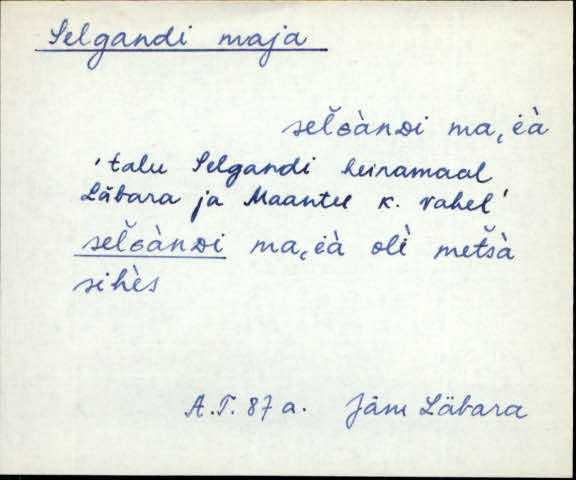 Selgandi maja
sel̆ɢànᴅi ma,i̮à
'talu Selgandi heinamaal
Läbara ja Maantee k. vahel'
sel̆ɢànᴅi ma,i̮à olì met̆sà
sihès
A.T. 87 a. Jäm Läbara